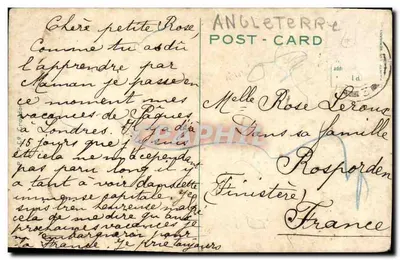 ANGLETERRE
POST - CARD
Chère petite Rose,
Comme tu as dû
l'apprendre par
Maman je passe en
ce moment mes
vacances de Pâques
à Londres.
15 jours que j'y suis
et cela ne m'a cependant
pas paru long il y
a tant à voir dans cette
immense capitale
suis très heureuse malgré
cela de me dire qu'aux
prochaines vacances je
pour
la France. Je prie toujours
Melle Rose Leroux
Dans sa famille
Rosporden
(Finistère)
France